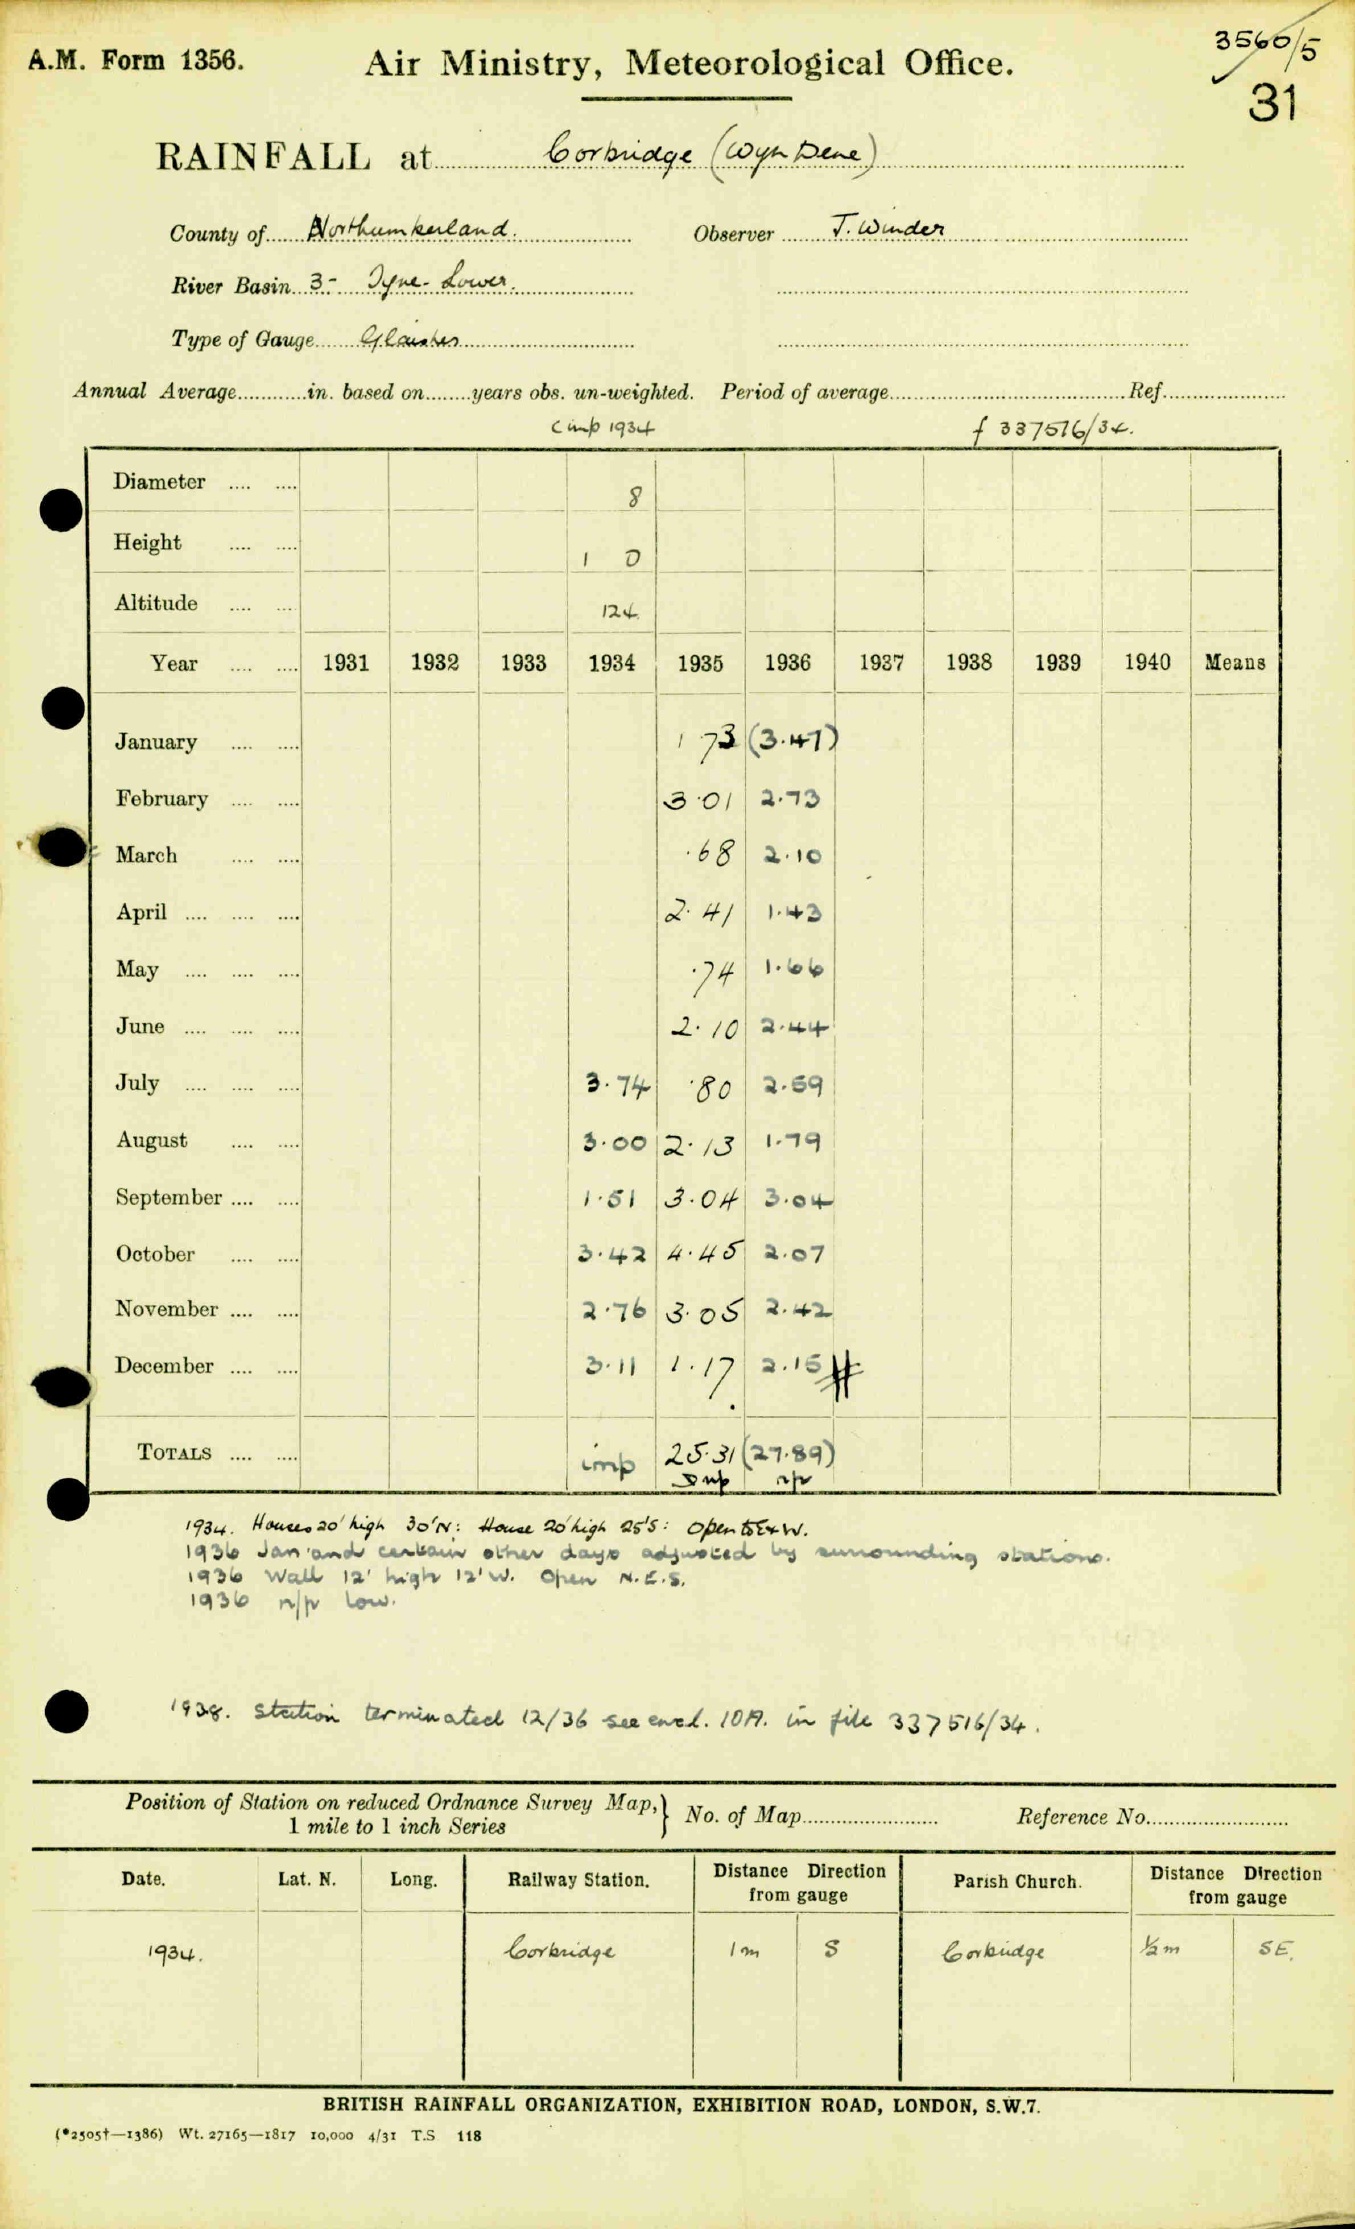 A.M. Form 1356. Air Ministry, Meteorological Office. 3560/5
31
RAINFALL at Corbridge (Wyn Dene)
County of Northumberland. Observer J. Winder
River Basin 3- Tyne-Lower.
Type of Gauge Glaisher
Annual Average............in. based on........years obs. un-weighted. Period of average........................Ref.............
Imp 1934 f 337516/34.
Diameter .... .... 8
Height .... .... 1 0
Altitude .... .... 124
Year .... .... 1931 1932 1933 1934 1935 1936 1937 1938 1939 1940 Means
January .... .... 1.73 (3.47)
February .... .... 3.01 2.73
March .... .... .68 2.10
April .... .... .... 2.41 1.43
May .... .... .... .74 1.66
June .... .... .... 2.10 2.44
July .... .... .... 3.74 .80 2.59
August .... .... 3.00 2.13 1.79
September .... .... 1.51 3.04 3.04
October .... .... 3.42 4.45 2.07
November .... .... 2.76 3.05 2.42
December .... .... 3.11 1.17 2.15
TOTALS .... .... imp 25.31 (27.89)
n/p
1934. Houses 20' high 30'N: House 20' high 25'S: Open to E & W.
1936 Jan and certain other days adjusted by surrounding stations.
1936 Wall 12' high 12'W. Open N.E.S.
1936 n/p low.
1938. Station terminated 12/36 see encl. 10A. in file 337516/34.
Position of Station on reduced Ordnance Survey Map, } No. of Map........................ Reference No.........................
1 mile to 1 inch Series
Date. Lat. N. Long. Railway Station. Distance Direction from gauge Parish Church. Distance Direction from gauge
1934. Corbridge 1m S Corbridge ½m SE.
BRITISH RAINFALL ORGANIZATION, EXHIBITION ROAD, LONDON, S.W.7.
(*2505†—1386) Wt. 27165—1817 10,000 4/31 T.S 118